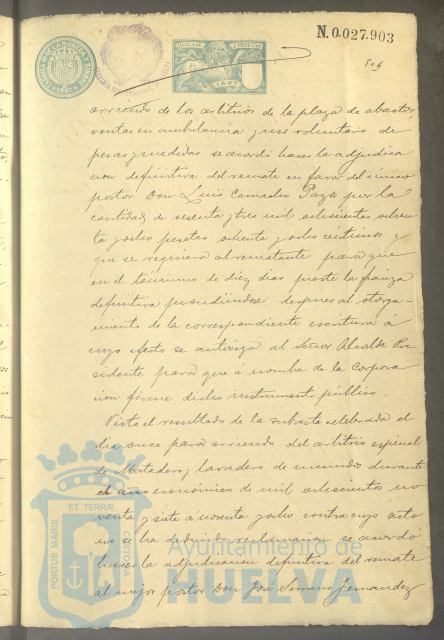 N.0.027.903
804
arriendo de los arbitrios de la plaza de abastos,
ventas en ambulancia y uso voluntario de
pesas y medidas se acordó hacer la adjudica
cion definitiva del remate en favor del único
postor Don Luis Camacho Pazos por la
cantidad de sesenta y tres mil ochocientas ochen
ta y ocho pesetas ochenta y ocho centimos y
que se requiera al rematante para que
en el término de diez dias preste la fianza
definitiva procediendose despues al otorga-
miento de la correspondiente escritura á
cuyo efecto se autoriza al Señor Alcalde Pre
sidente para que á nombre de la Corpora
cion firme dicho instrumento público.
Visto el resultado de la subasta celebrada el
dia once para arriendo del arbitrio especial
de Matadero y lavadero de menudos durante
el año económico de mil ochocientos no
venta y siete á noventa y ocho contra cuyo acto
no se ha deducido reclamacion se acordó
hacer la adjudicacion definitiva del remate
al mejor postor Don José Serrano Fernandez
PORTUS MARIS ET TERRAE CUSTODIA
Ayuntamiento de
HUELVA